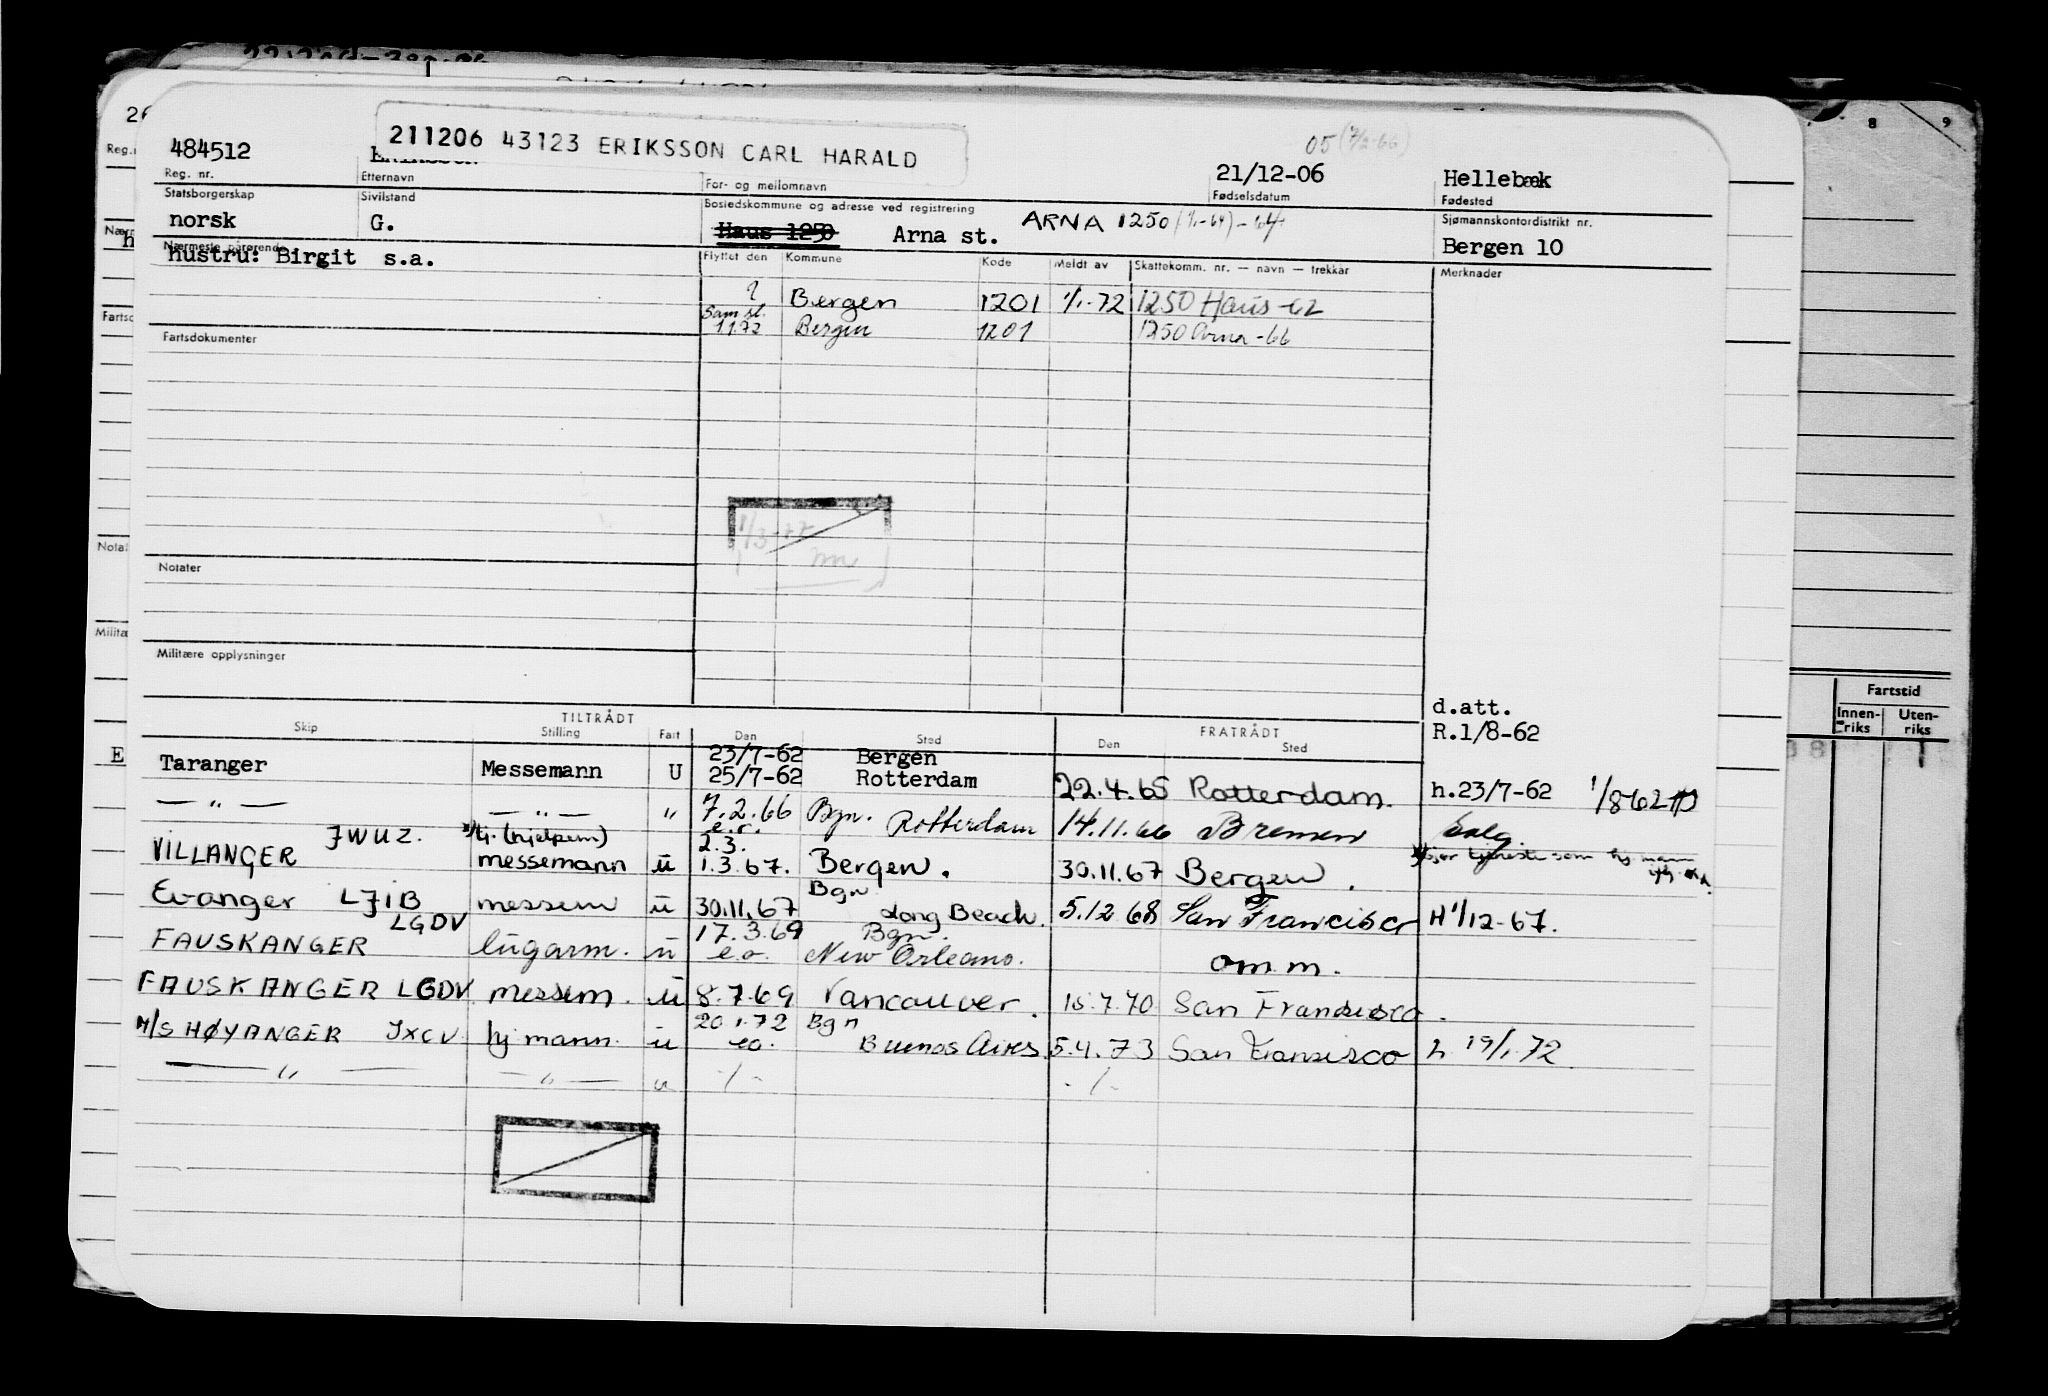 211206 43123 ERIKSSON CARL HARALD
05 (7/2-66)
484512 21/12-06 Hellebæk
Reg. nr. Etternavn For- og mellomnavn Fødselsdatum Fødested
Statsborgerskap Sivilstand Bostedskommune og adresse ved registrering Sjømannskontordistrikt nr.
norsk G. Haus 1250 Arna st. ARNA 1250 (1/1-64) - 64 Bergen 10
Nærmeste pårørende Flyttet den Kommune Kode Meldt av Skattekomm. nr. — navn — trekkår Merknader
hustru: Birgit s.a.
? Bergen 1201 1/1-72 1250 Haus -62
Sam st.
1172 Bergen 1201 1250 Arna -66
Fartsdokumenter
Notater
Militære opplysninger
d.att.
R.1/8-62
TILTRÅDT FRATRÅDT
Skip Stilling Fart Den Sted Den Sted
Taranger Messemann U 23/7-62 Bergen
25/7-62 Rotterdam 22.4.65 Rotterdam. h.23/7-62 1/8-62
— " — — " — " 7.2.66 Bgn. Rotterdam 14.11.66 Bremen
e.r.
VILLANGER JWUZ. tj. (hjelpem) messemann u 2.3.
1.3.67. Bergen. 30.11.67 Bergen.
Evanger LJIB messem u 30.11.67 Bgn Long Beach. 5.12.68 San Francisco H 1/12-67.
FAUSKANGER LGDV lugarm. u 17.3.69 Bgn.
e.o. New Orleans. om.m.
FAUSKANGER LGDV messem. u 8.7.69 Vancouver. 15.7.70 San Francisco.
M/S HØYANGER JXCV hj mann. u 20.1.72 Bgn
eo. Buenos Aires 5.4.73 San Fransisco h 19/1.72
— " — — " — u - / - - / -
Fartstid
Innen-riks Uten-riks
8 9